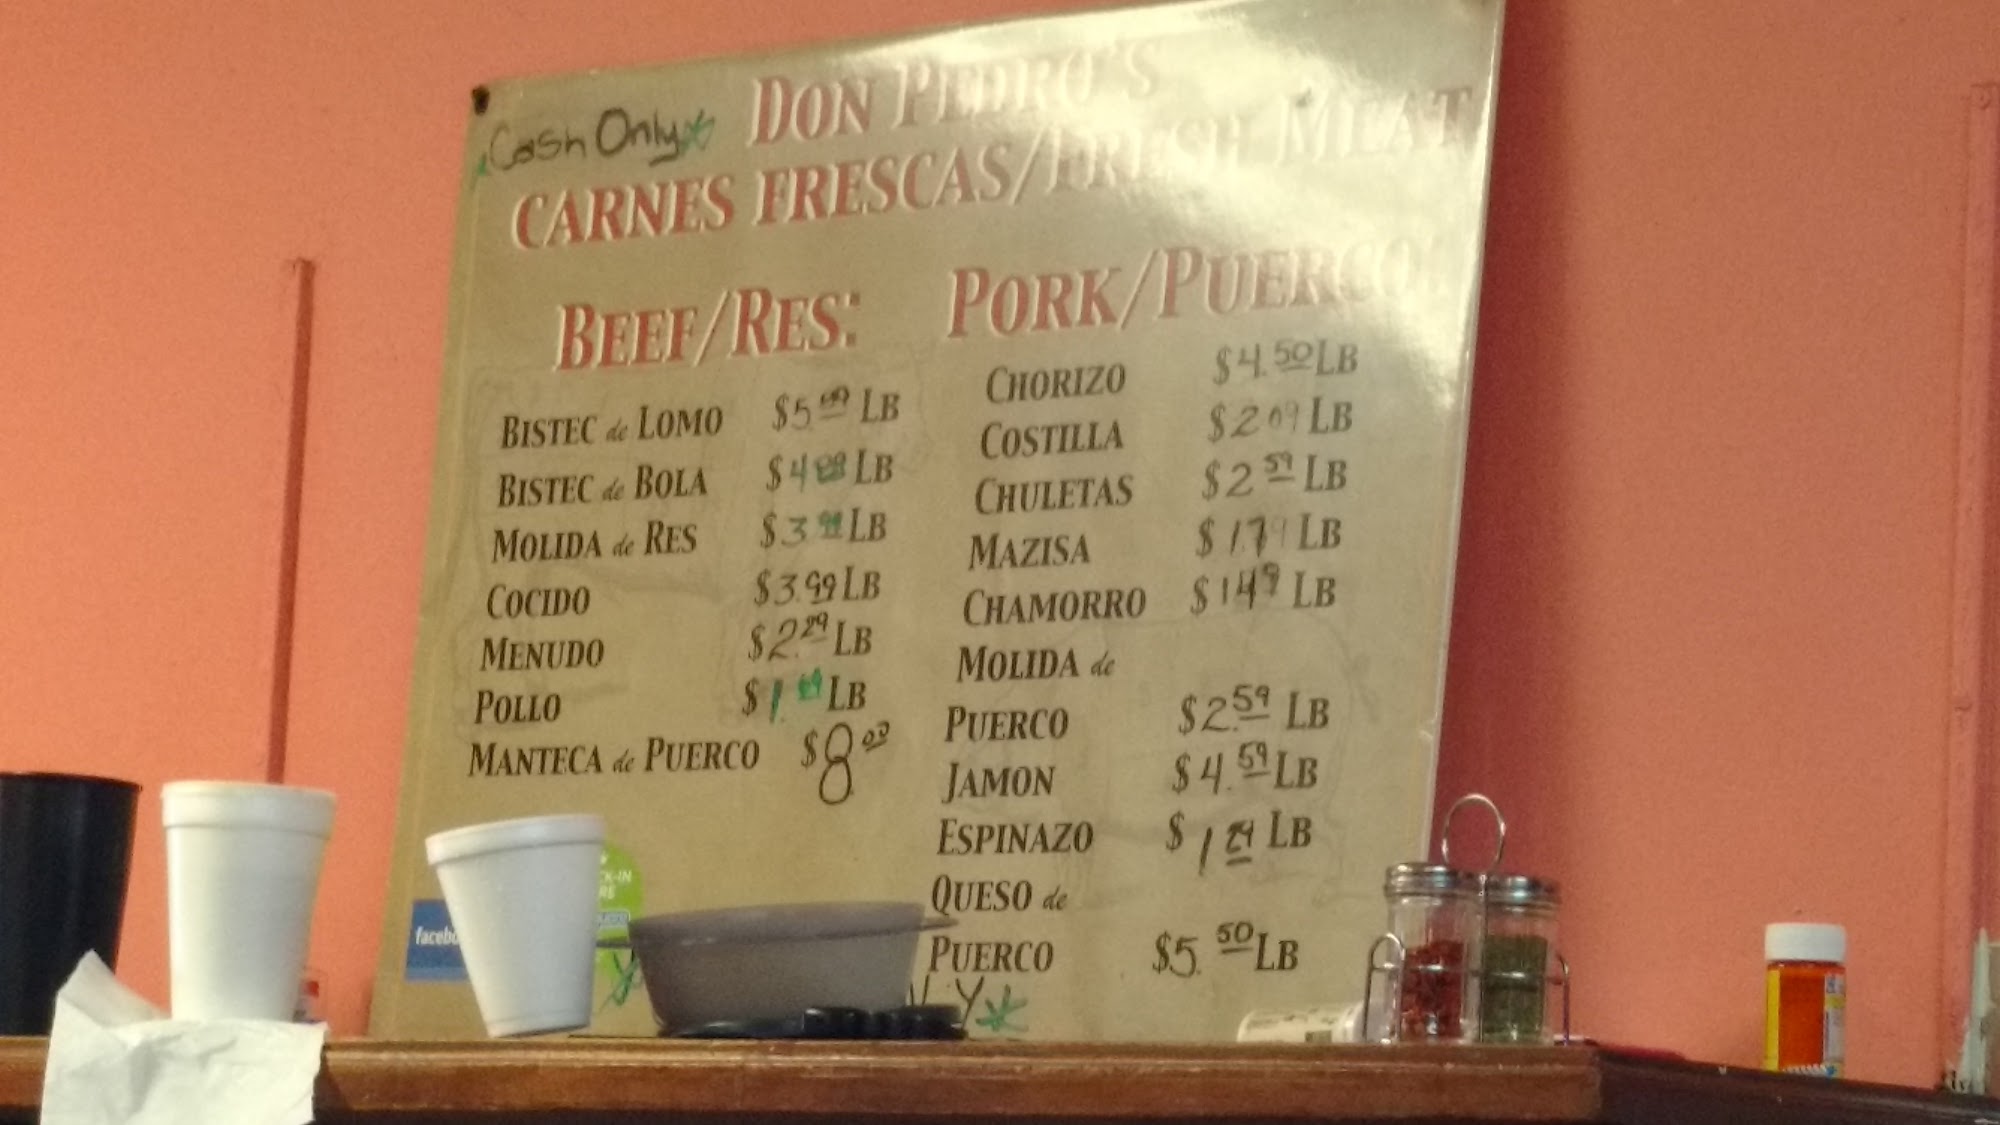 Cash Only
DON PEDRO'S
CARNES FRESCAS/FRESH MEAT
BEEF/RES:
BISTEC de LOMO $5. LB
BISTEC de BOLA $4 LB
MOLIDA de RES $3 LB
COCIDO $3.99 LB
MENUDO $2.29 LB
POLLO $1. LB
MANTECA de PUERCO $8
PORK/PUERCO:
CHORIZO $4.50 LB
COSTILLA $2 09 LB
CHULETAS $2 59 LB
MAZISA $1.79 LB
CHAMORRO $1 49 LB
MOLIDA de
PUERCO $2.59 LB
JAMON $4.59 LB
ESPINAZO $1 LB
QUESO de
PUERCO $5. 50 LB
LY
facebo
CK-IN